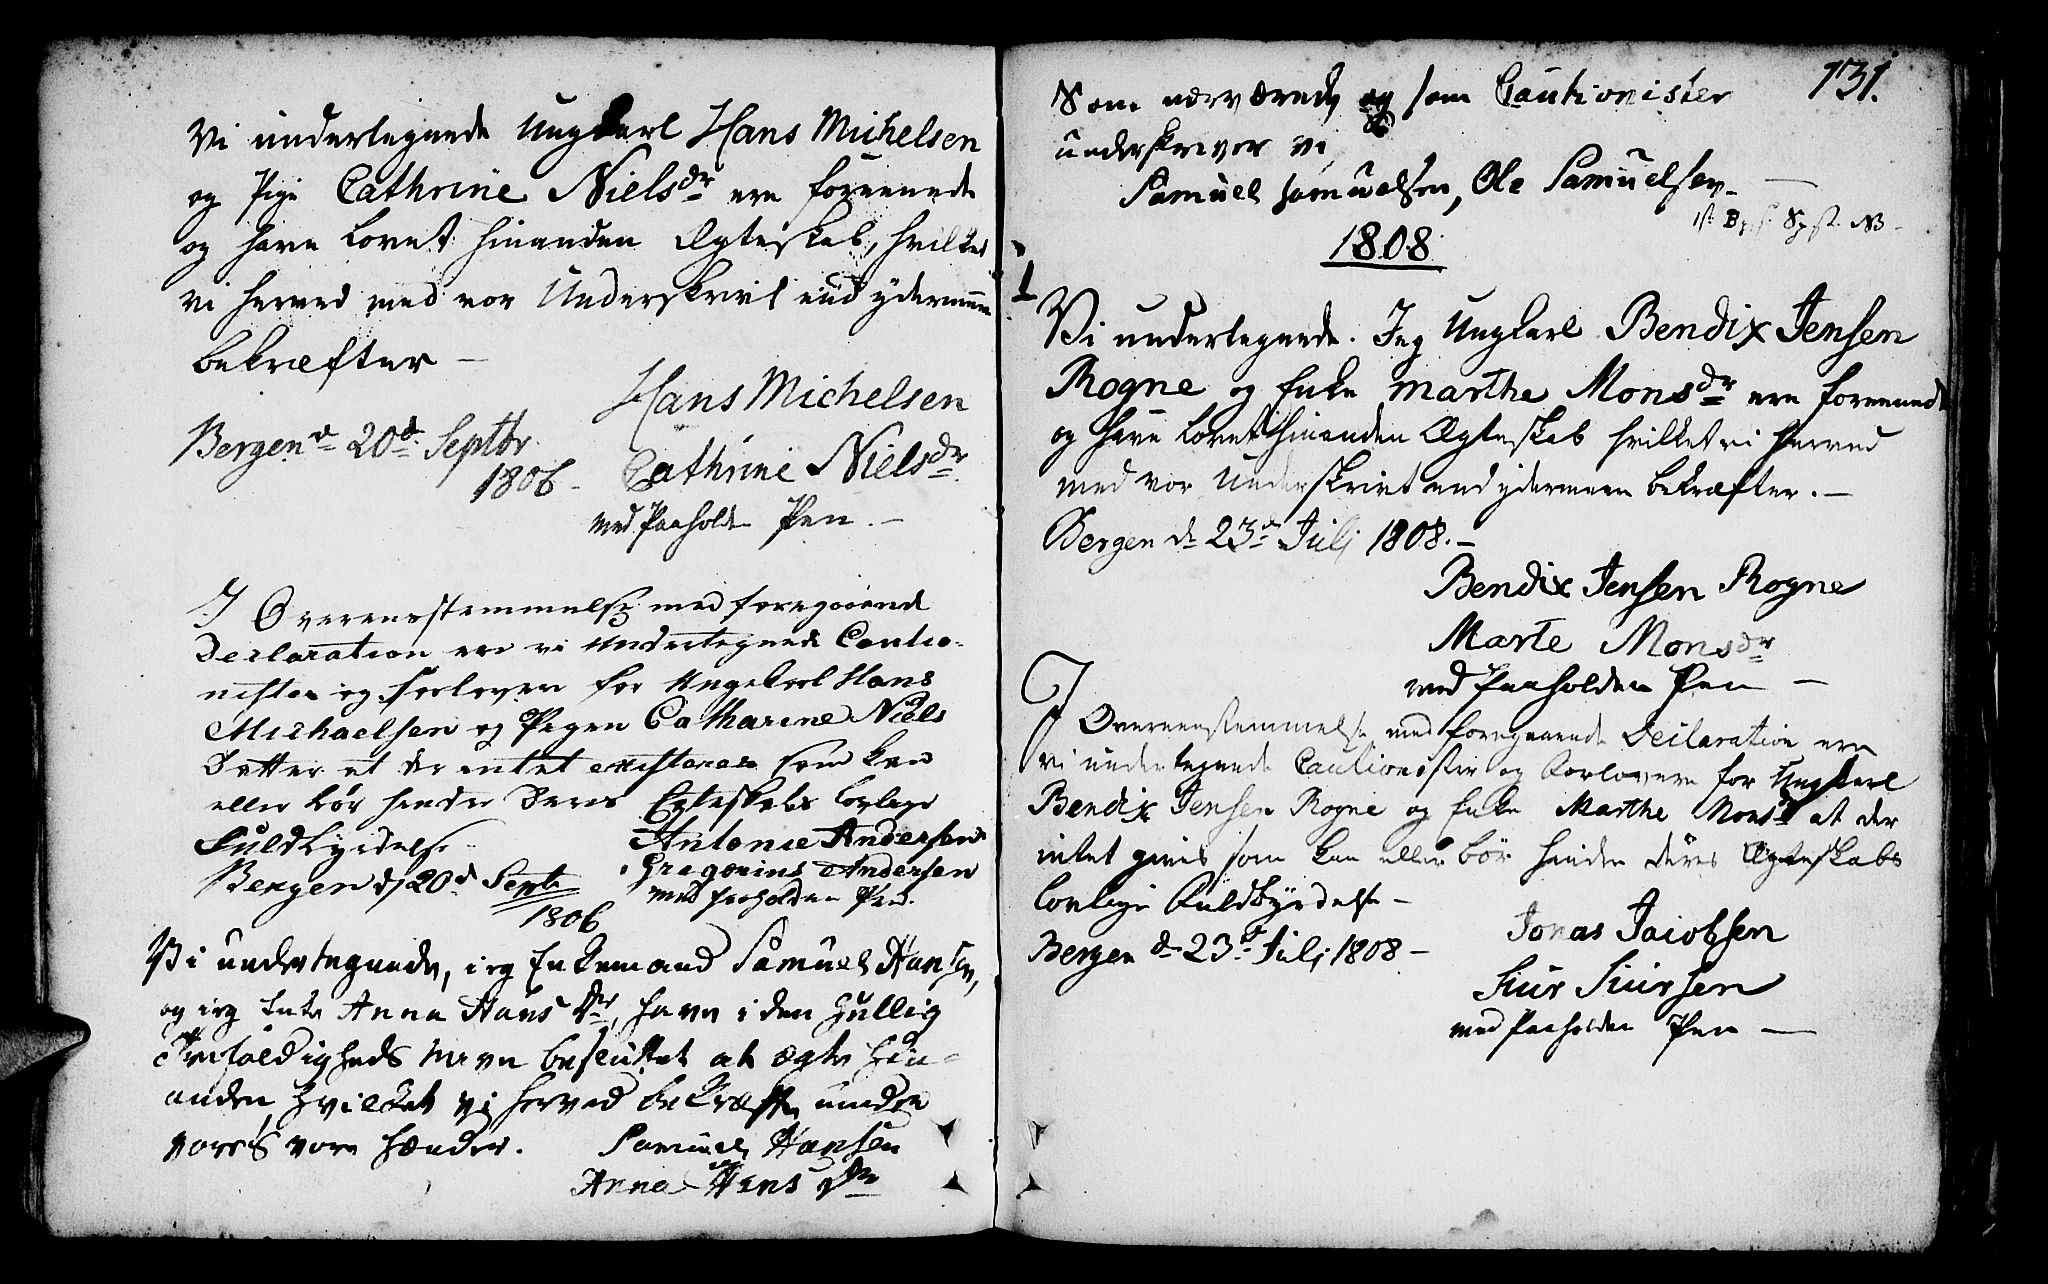 Vi undertegnede Ungkarl Hans Michelsen
og Pige Cathrine Nielsdr ere foreenede
og have lovet hinanden Ægteskab, hvilket
vi herved med vor Underskrivt end ydermeere
bekræfter —
Hans Michelsen
Bergen d 20d Septbr.
1806 -
Cathrine Nielsdr
med Paaholden Pen. —
I Overensstemmelse med foregaaende
Declaration ere vi Undertegnede Cautio-
nister og Forlovere for Ungekarl Hans
Michaelsen og Pigen Catharine Niels
Datter at der intet existerer som kan
eller bør hindre Deres Egteskabs lovlige
Fuldbyrdelse
Antonie Andersen
Bergen d 20d Septb
1806
Gregorius Andersen
med paaholden Pen.
Vi undertegnede, ieg Enkemand Samuel Hansen,
og ieg Enke Anna Hans Dr, have i den Hellig
Trefoldigheds Navn besluttet at ægte hin-
anden, hvilket vi herved bekræfte under
vores vore Hænder.
Samuel Hansen
Anna Hans Dr
131.
Som nærværende og som Cautionister
underskriver vi
Samuel Samuelsen, Ole Samuelsen —
1808
1
Vi undertegnede. Jeg Ungkarl Bendix Jensen
Rogne og Enke Marthe Monsdr ere foreenede
og have lovet hinanden Ægteskab hvilket vi herved
med vor Underskrivt end ydermeere bekræfter. —
Bergen d 23d Julj 1808. —
Bendix Jensen Rogne
Marte Monsdr
med paaholden Pen —
I Overeenstemmelse med foregaaende Declaration ere
vi undertegnede Cautionister og Forlovere for Ungkarl
Bendix Jensen Rogne og Enke Marthe Monsd at der
intet gives som kan eller bør hindre deres Ægteskabs
lovlige Fuldbyrdelse —
Bergen d 23d Julj 1808 —
Jonas Jacobsen
Siur Siursen
med Paaholden Pen —